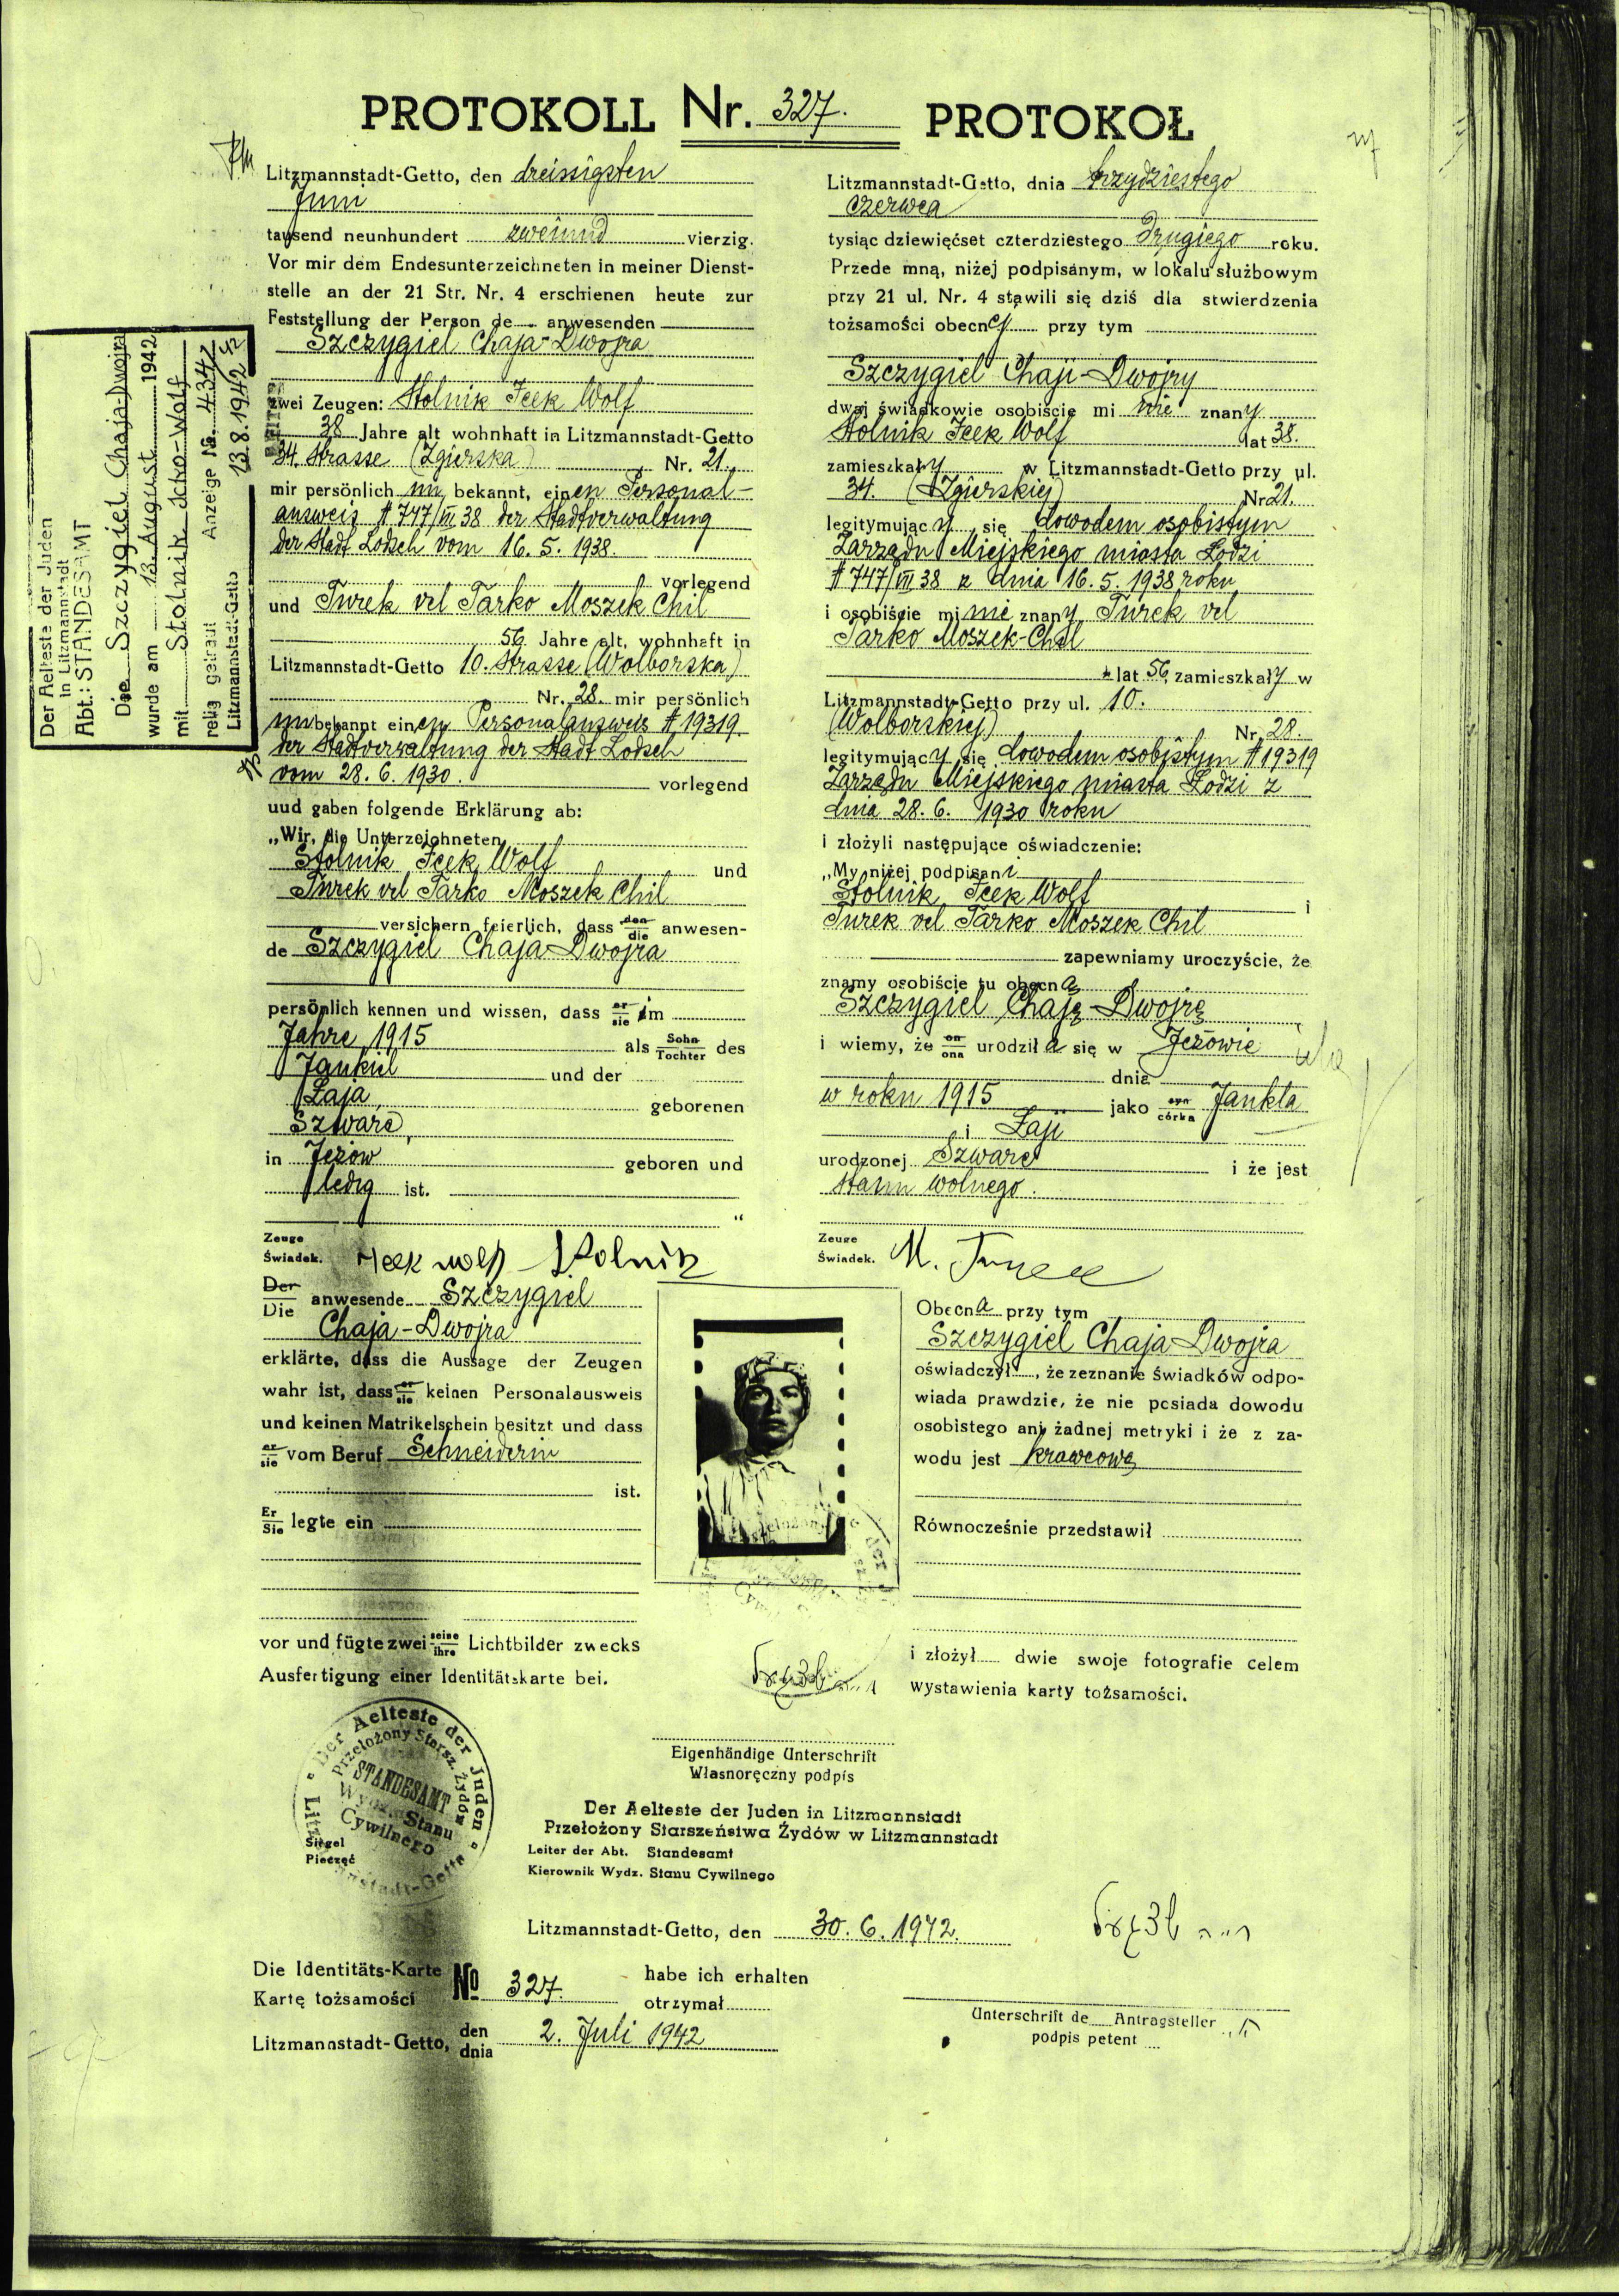 PROTOKOLL Nr. 327. PROTOKOŁ
Litzmannstadt-Getto, den dreissigsten
Juni
tausend neunhundert zweiund vierzig.
Vor mir dem Endesunterzeichneten in meiner Dienst-
stelle an der 21 Str. Nr. 4 erschienen heute zur
Feststellung der Person de anwesenden
Szczygiel Chaja-Dwojra
zwei Zeugen: Stolnik Icek Wolf
38 Jahre alt wohnhaft in Litzmannstadt-Getto
34. Strasse (Zgierska) Nr. 21.
mir persönlich un bekannt, einen Personal-
ausweis # 747/VII 38 der Stadtverwaltung
der Stadt Lodsch vom 16. 5. 1938.
vorlegend
und Turek vel Tarko Moszek Chil
56 Jahre alt, wohnhaft in
Litzmannstadt-Getto 10. Strasse (Wolborska)
Nr. 28. mir persönlich
un bekannt einen Personalausweis # 19319
der Stadtverwaltung der Stadt Lodsch
vom 28. 6. 1930. vorlegend
uud gaben folgende Erklärung ab:
„Wir, die Unterzeichneten
Stolnik Icek Wolf und
Turek vel Tarko Moszek Chil
versichern feierlich, dass den die anwesen-
de Szczygiel Chaja-Dwojra
persönlich kennen und wissen, dass er sie im
Jahre 1915 als Sohn Tochter des
Jankiel und der
Łaja, geborenen
Szwarc,
in Jeżow geboren und
ledig ist.
"
Zeuge
Świadek. Icek Wolf Stolnik
Der
Die anwesende Szczygiel
Chaja-Dwojra
erklärte, dass die Aussage der Zeugen
wahr ist, dass er sie keinen Personalausweis
und keinen Matrikelschein besitzt und dass
er sie vom Beruf Schneiderin
ist.
Er Sie legte ein
vor und fügte zwei seine ihre Lichtbilder zwecks
Ausfertigung einer Identitätskarte bei.
Litzmannstadt-Getto, dnia trzydziestego
czerwca
tysiąc dziewięćset czterdziestego drugiego roku.
Przede mną, niżej podpisanym, w lokalu służbowym
przy 21 ul. Nr. 4 stawili się dziś dla stwierdzenia
tożsamości obecnej przy tym
Szczygiel Chaji-Dwojry
dwaj świadkowie osobiście mi nie znany
Stolnik Icek Wolf lat 38.
zamieszkały w Litzmannstadt-Getto przy ul.
34. (Zgierskiej) Nr 21.
legitymujący się dowodem osobistym
Zarządu Miejskiego miasta Łodzi
# 747/VII 38 z dnia 16. 5. 1938 roku
i osobiście mi nie znany Turek vel
Tarko Moszek-Chil
lat 56, zamieszkały w
Litzmannstadt-Getto przy ul. 10.
(Wolborskiej) Nr. 28.
legitymujący się dowodem osobistym # 19319
Zarządu Miejskiego miasta Łodzi z
dnia 28. 6. 1930 roku
i złożyli następujące oświadczenie:
„My niżej podpisani
Stolnik Icek Wolf i
Turek vel Tarko Moszek Chil
zapewniamy uroczyście, że
znamy osobiście tu obecną
Szczygiel Chaję-Dwojrę
i wiemy, że on ona urodziła się w Jeżowie
dnia
w roku 1915 jako syn córka Jankla
i Łaji
urodzonej Szwarc i że jest
stanu wolnego.
Zeuge
Świadek. M. Turek
Obecna przy tym
Szczygiel Chaja-Dwojra
oświadczył, że zeznanie świadków odpo-
wiada prawdzie, że nie posiada dowodu
osobistego ani żadnej metryki i że z za-
wodu jest krawcową
Równocześnie przedstawił
i złożył dwie swoje fotografie celem
wystawienia karty tożsamości.
Eigenhändige Unterschrift
Własnoręczny podpis
Der Aelteste der Juden in Litzmannstadt
Przełożony Starszeństwa Żydów w Litzmannstadt
Leiter der Abt. Standesamt
Kierownik Wydz. Stanu Cywilnego
Der Aelteste der Juden
Litzmannstadt-Getto
Przełożony Starsz. Żydów
STANDESAMT
Wydz. Stanu
Cywilnego
Siegel
Pieczęć
Litzmannstadt-Getto, den 30. 6. 1942.
Die Identitäts-Karte
Kartę tożsamości № 327. habe ich erhalten
otrzymał
Litzmannstadt-Getto, den dnia 2. Juli 1942
Unterschrift de Antragsteller
podpis petent
Der Aelteste der Juden
in Litzmannstadt
Abt.: STANDESAMT
Die Szczygiel Chaja-Dwojra
wurde am 13. August 1942
mit Stolnik Icko-Wolf
relig getraut Anzeige No. 434/42
Litzmannstadt-Getto 13.8.1942